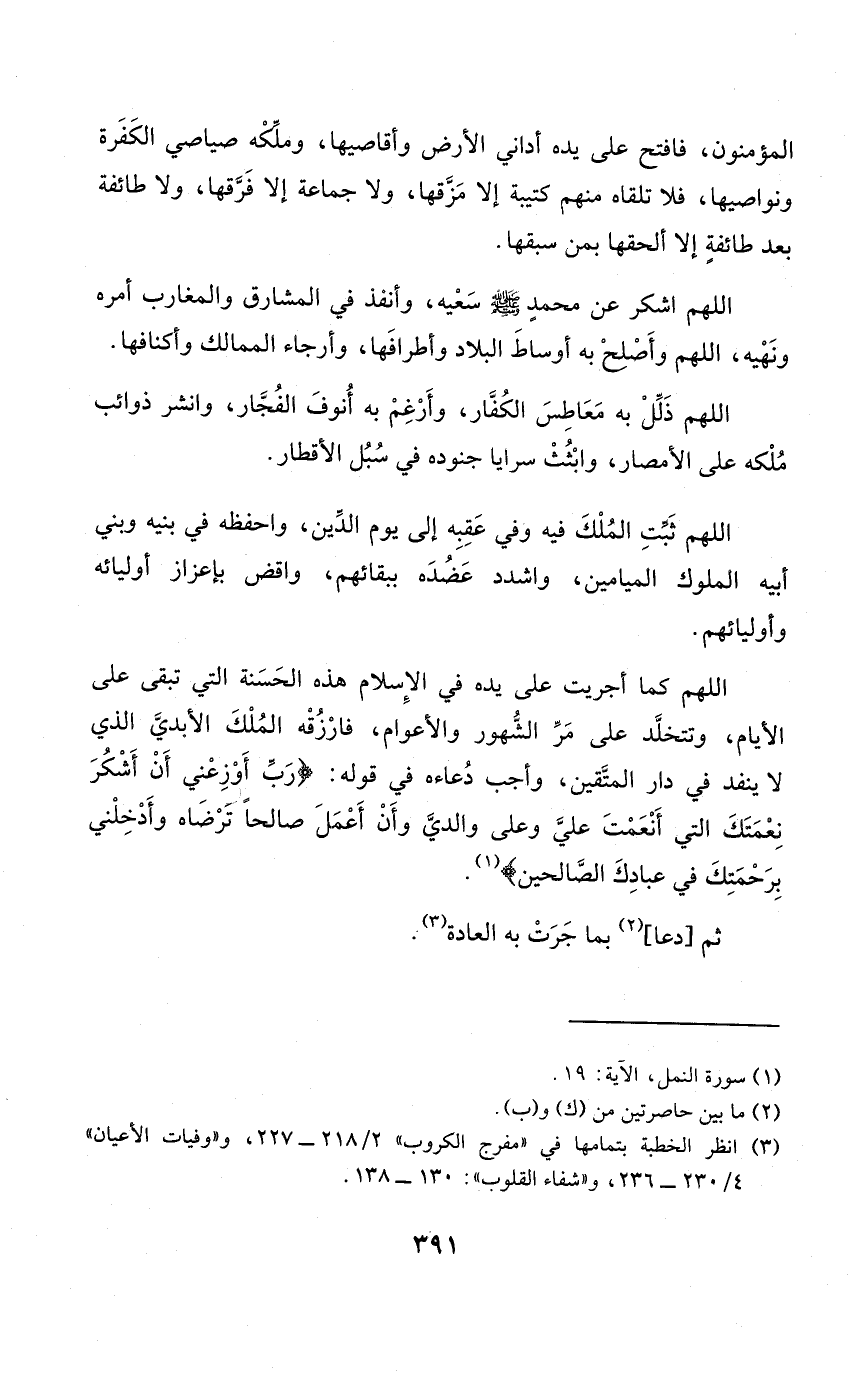 المؤمنون، فافتح على يده أداني الأرض وأقاصيها، وملِّكْه صياصي الكَفَرة
ونواصيها، فلا تلقاه منهم كتيبة إلا مَزَّقها، ولا جماعة إلا فَرَّقها، ولا طائفة
بعد طائفةٍ إلا ألحقها بمن سبقها.
اللهم اشكر عن محمدٍ ﷺ سَعْيه، وأنفذ في المشارق والمغارب أمره
ونَهْيه، اللهم وأَصْلِحْ به أوساطَ البلاد وأطرافَها، وأرجاء الممالك وأكنافها.
اللهم ذَلِّلْ به مَعَاطِسَ الكُفَّار، وأَرْغِمْ به أُنوفَ الفُجَّار، وانشر ذوائب
مُلْكه على الأمصار، وابْثُثْ سرايا جنوده في سُبُل الأقطار.
اللهم ثَبِّتِ المُلْكَ فيه وفي عَقِبِه إلى يوم الدِّين، واحفظه في بنيه وبني
أبيه الملوك الميامين، واشدد عَضُدَه ببقائهم، واقض بإعزاز أوليائه
وأوليائهم.
اللهم كما أجريت على يده في الإِسلام هذه الحَسَنة التي تبقى على
الأيام، وتتخلَّد على مَرِّ الشُّهور والأعوام، فارْزُقْه المُلْكَ الأبديَّ الذي
لا ينفد في دار المتَّقين، وأجب دُعاءه في قوله: ﴿رَبِّ أَوْزِعْني أَنْ أَشْكُرَ
نِعْمَتَكَ التي أَنْعَمْتَ عليَّ وعلى والديَّ وأَنْ أَعْمَلَ صالحاً تَرْضَاه وأَدْخِلْني
بِرَحْمَتِكَ في عبادِكَ الصَّالحين﴾(١).
ثم [دعا](٢) بما جَرَتْ به العادة(٣).
(١) سورة النمل، الآية: ١٩.
(٢) ما بين حاصرتين من (ك) و(ب).
(٣) انظر الخطبة بتمامها في «مفرج الكروب» ٢/ ٢١٨ ـ ٢٢٧، و«وفيات الأعيان»
٤/ ٢٣٠ ـ ٢٣٦، و«شفاء القلوب»: ١٣٠ ـ ١٣٨.
٣٩١